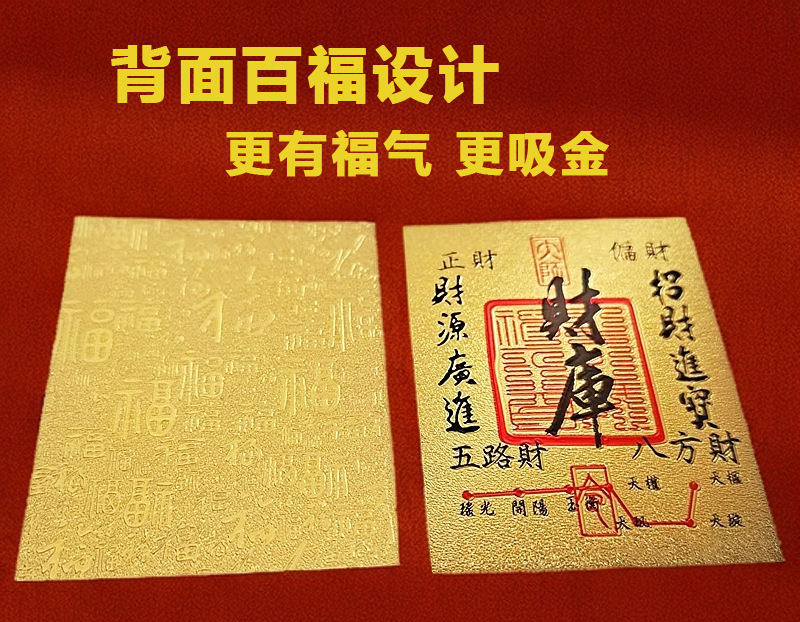 背面百福设计
更有福气 更吸金
福
正財
大師
偏財
財源廣進
財庫
招財進寶
五路財
八方財
搖光 開陽 玉衡 天權 天樞
天璇